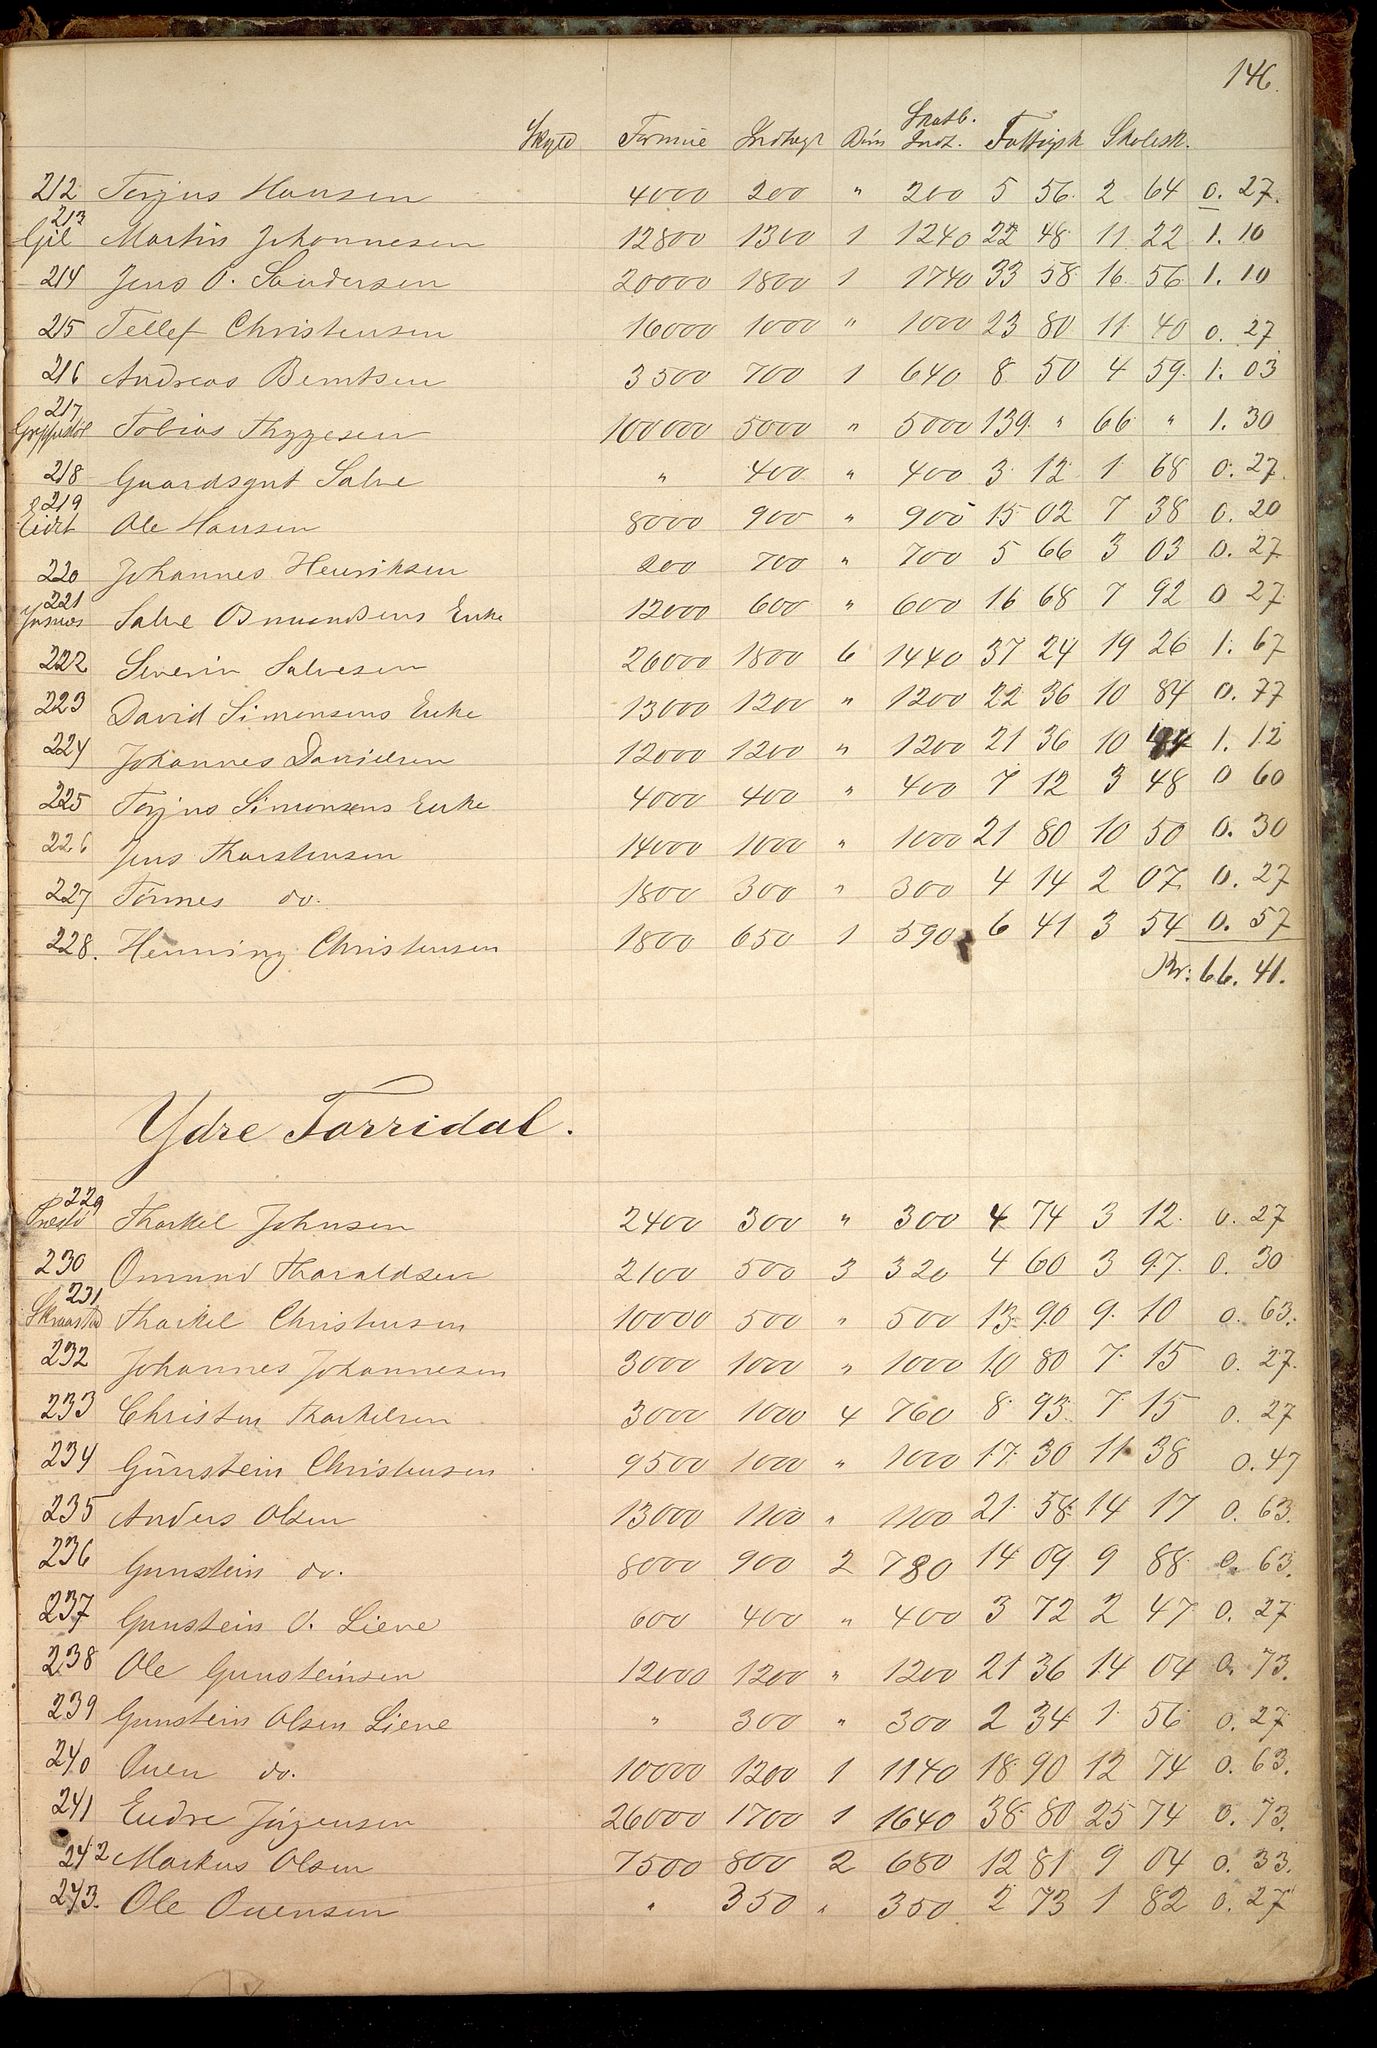 146.
Skyld Formue Indtægt Børn Skatb. Indt. Fattigsk Skolesk.
212 Terjus Hansen 4000 200 " 200 5 56 2 64 0. 27.
213 Gil Martin Johannesen 12800 1300 1 1240 22 48 11 22 1. 10
214 Jens O. Sandersen 20000 1800 1 1740 33 58 16 56 1. 10
215 Tellef Christensen 16000 1000 " 1000 23 80 11 40 0. 27
216 Andreas Berntsen 3500 700 1 640 8 50 4 59 1. 03
217 Tobias Thygesen 100000 5000 " 5000 139 " 66 " 1. 30
218 Gaardsgut Salve " 400 " 400 3 12 1 68 0. 27.
219 Eidet Ole Hansen 8000 900 " 900 15 02 7 38 0. 20
220 Johannes Henriksen 200 700 " 700 5 66 3 03 0. 27
221 Salve Osmundsens Enke 12000 600 " 600 16 68 7 92 0 27
222 Severin Salvesen 26000 1800 6 1440 37 24 19 26 1. 67
223 David Simonsens Enke 13000 1200 " 1200 22 36 10 84 0. 77
224 Johannes Danielsen 12000 1200 " 1200 21 36 10 44 1. 12
225 Terjus Simonsens Enke 4000 400 " 400 7 12 3 48 0 60
226 Jens Tharstensen 14000 1000 " 1000 21 80 10 50 0. 30
227 Tønnes do. 1800 300 " 300 4 14 2 07 0. 27
228. Henning Christensen 1800 650 1 590 6 41 3 54 0. 57
Kr: 66. 41.
Ydre Torridal.
229 Tharkel Johnsen 2400 300 " 300 4 74 3 12 0. 27
230 Omund Tharaldsen 2100 500 3 320 4 60 3 97 0. 30
231 Skraastad Tharkel Christensen 10000 500 " 500 13 90 9 10 0. 63.
232 Johannes Johannesen 3000 1000 " 1000 10 80 7 15 0. 27.
233 Christen Tharkelsen 3000 1000 4 760 8 93 7 15 0. 27
234 Günstein Christensen 9500 1000 " 1000 17 30 11 38 0. 47
235 Anders Olsen 13000 1100 " 1100 21 58 14 17 0. 63.
236 Gunstein do. 8000 900 2 780 14 09 9 88 0. 63.
237 Gunstein O. Liene 600 400 " 400 3 72 2 47 0. 27
238 Ole Gunsteinsen 12000 1200 " 1200 21 36 14 04 0. 73.
239 Gunstein Olsen Liene " 300 " 300 2 34 1 56 0. 27
240 Ouen do. 10000 1200 1 1140 18 90 12 74 0. 63.
241 Endre Jörgensen 26000 1700 1 1640 38 80 25 74 0. 73.
242 Markus Olsen 7500 800 2 680 12 81 9 04 0. 33.
243. Ole Ouensen " 350 " 350 2 73 1 82 0. 27